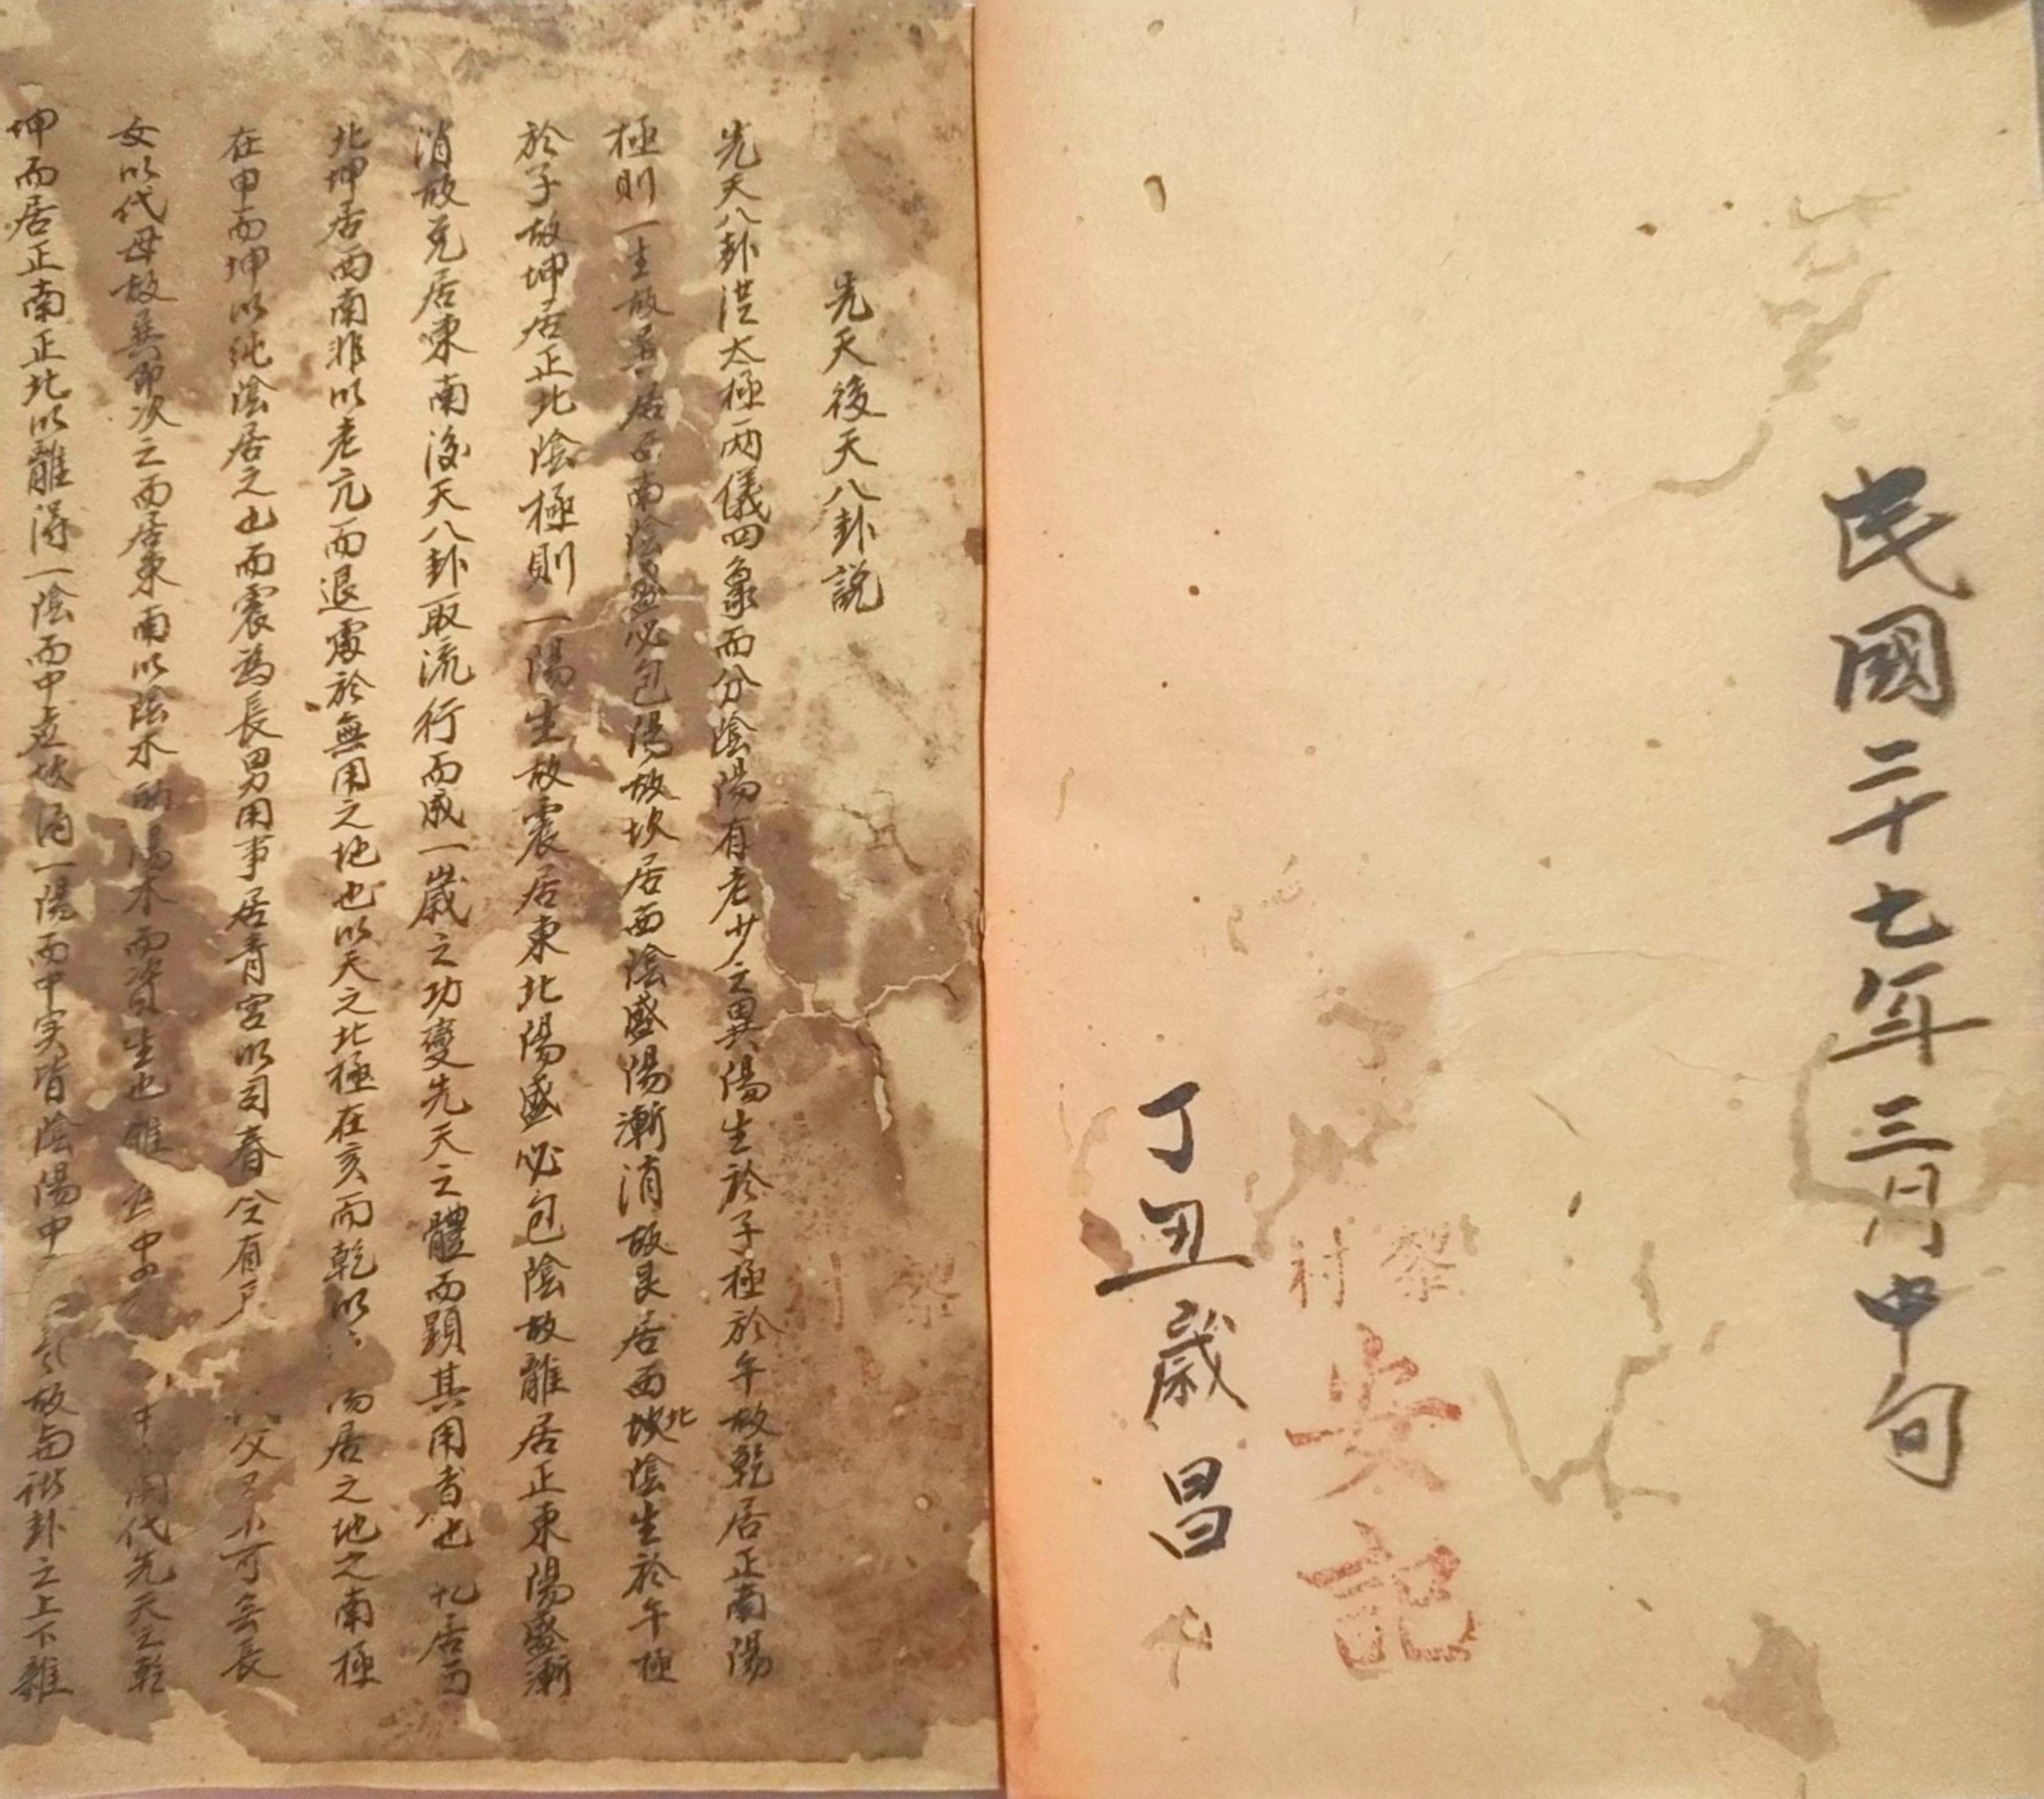 民國二十七年三月中旬
黎
村
安記
丁丑歲昌
先天後天八卦説
先天八卦從太極両儀四象而分陰陽有老少之異陽生於子極於午故乾居正南陽
極則一生故居南陰盛必包陽故坎居西陰盛陽漸消故艮居西北坎陰生於午極
於子故坤居正北陰極則一陽生故震居東北陽盛必包陰故離居正東陽盛漸
消故兌居東南後天八卦取流行而成一歲之功變先天之體而顕其用者也居西
北坤居西南非以老亢而退處於無用之地也以天之北極在亥而乾以而居之地之南極
在申而坤以純陰居之也而震為長男用事居青宮以司春令有父可無長
女以代母故巽即次之而居東南以陰木助陽木而資生也離中用代先天之乾
坤而居正南正北以離得一陰而中虚坎得一陽而中実皆陰陽中故與衆卦之上下離